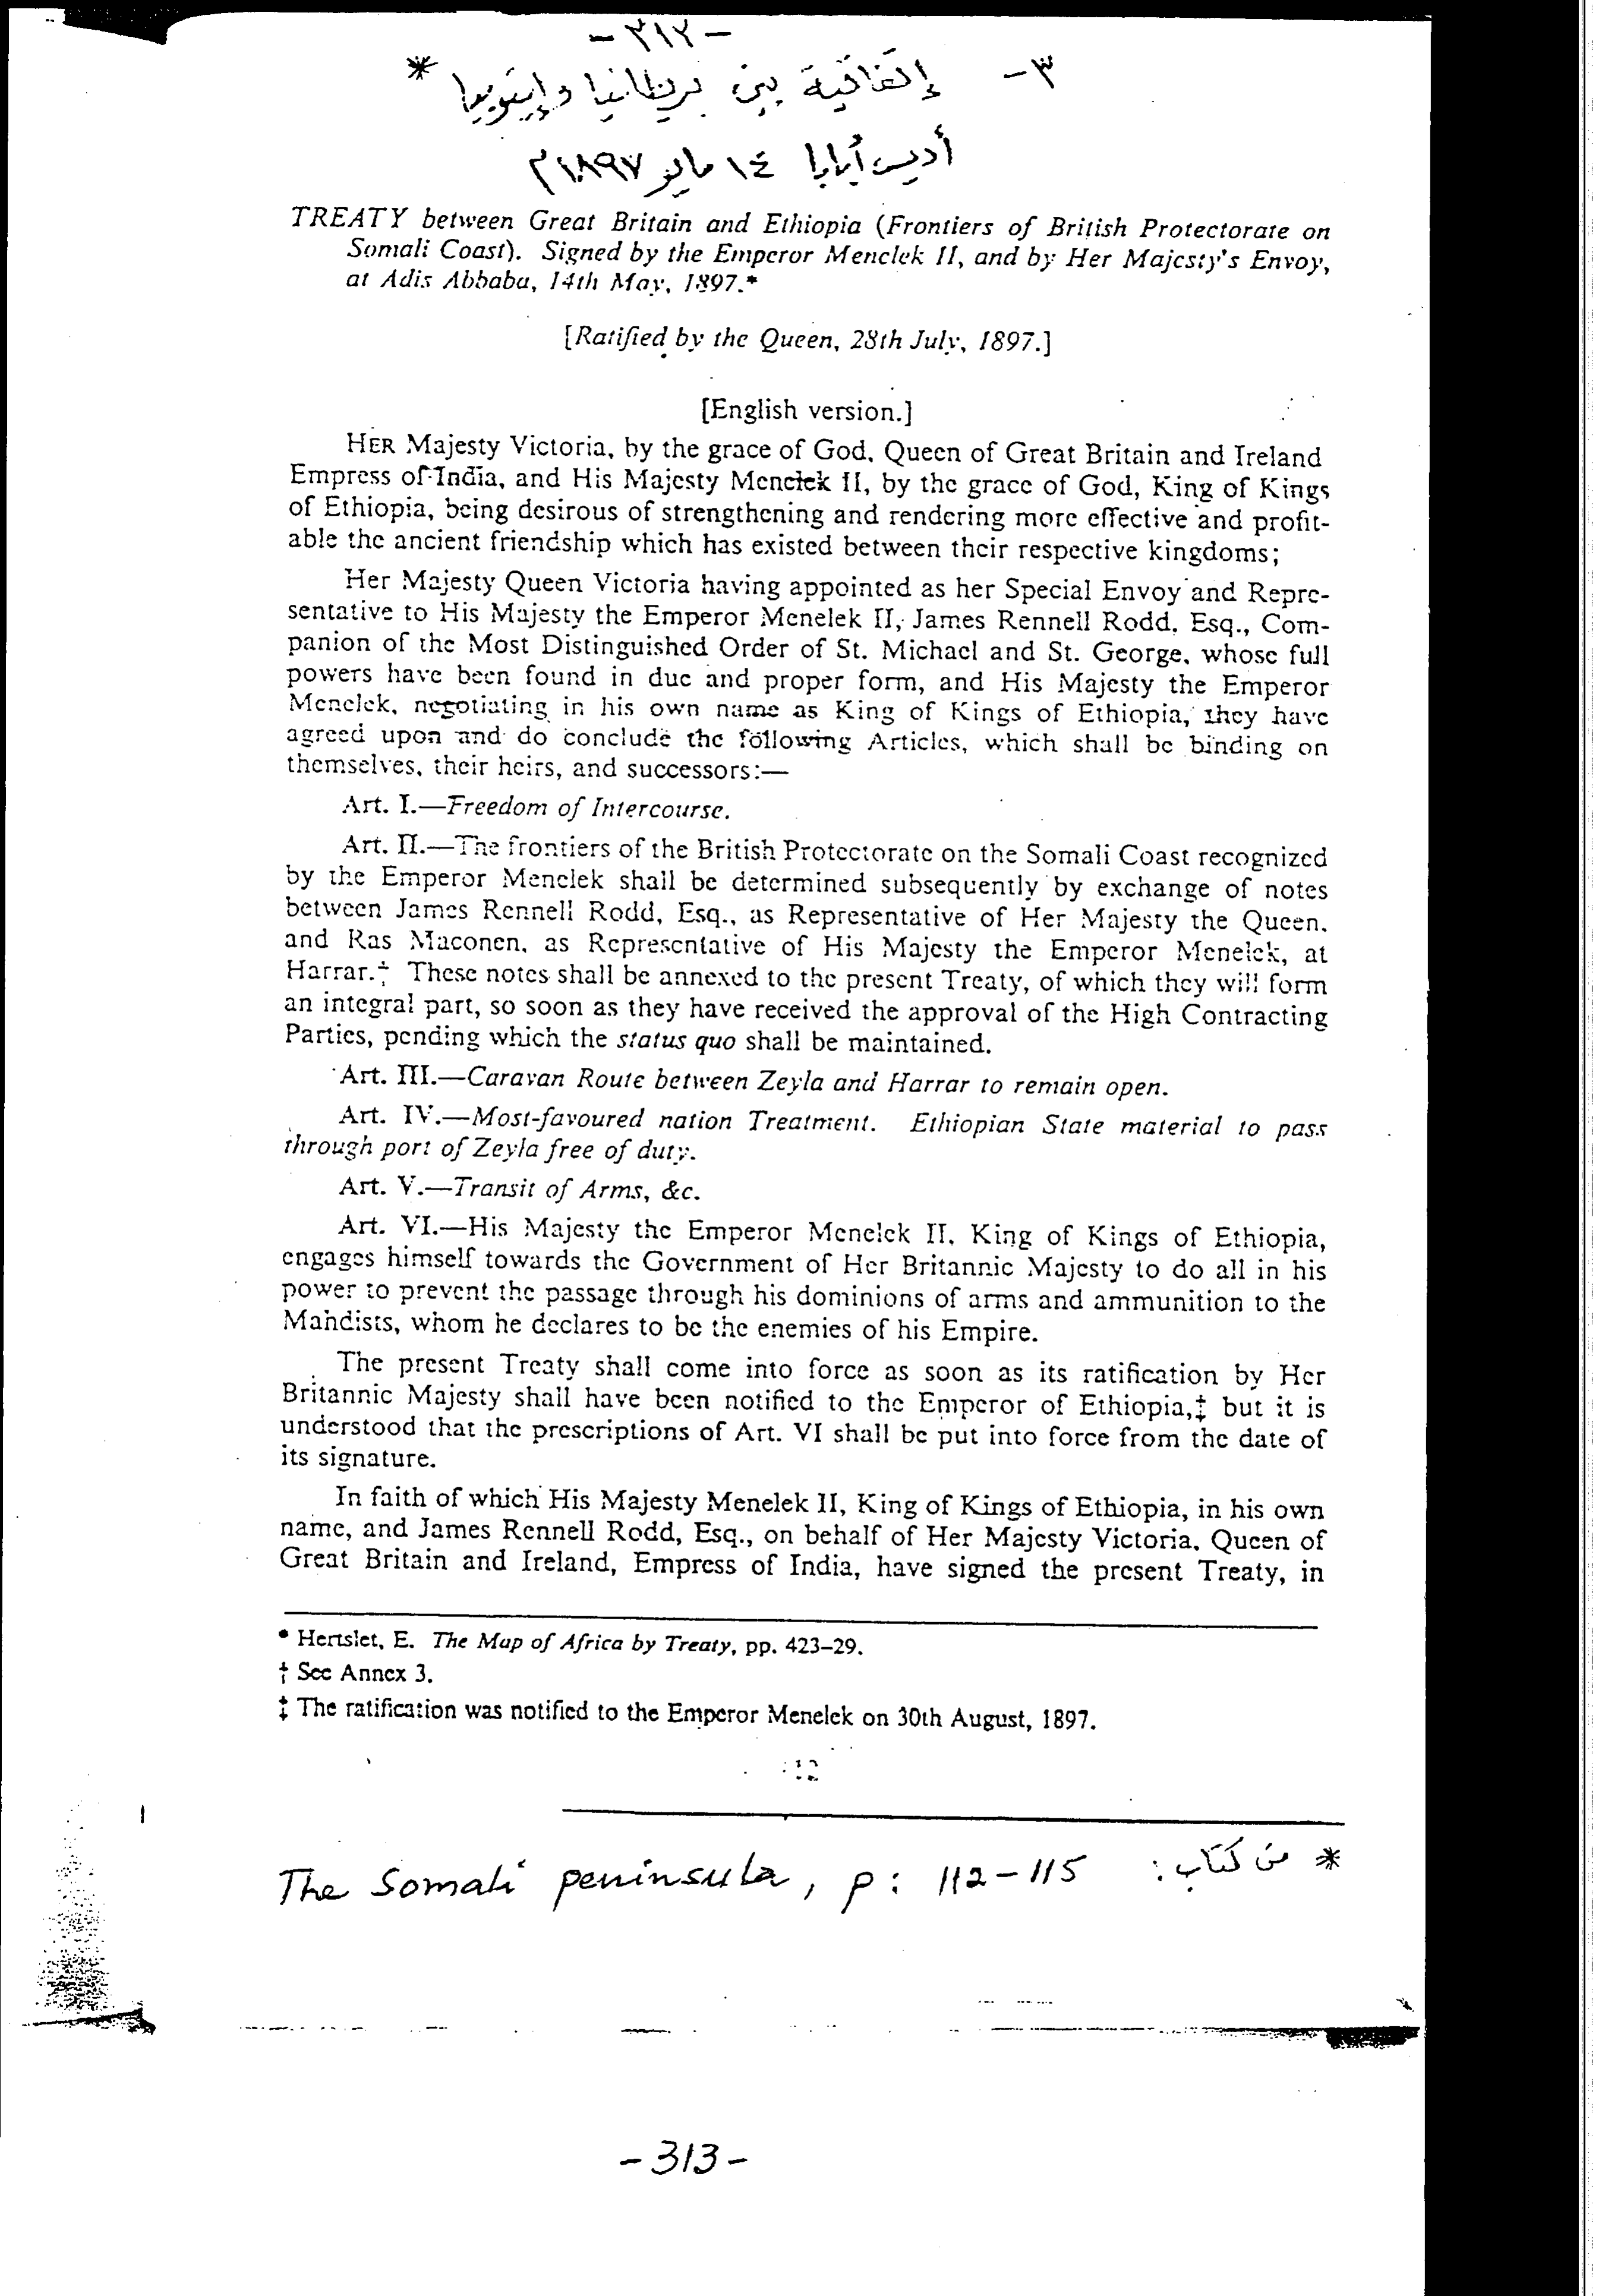 -٣١٢-
٣- إتفاقية بين بريطانيا وإيثوبيا *
أديس أبابا ١٤ مايو ١٨٩٧م
TREATY between Great Britain and Ethiopia (Frontiers of British Protectorate on
Somali Coast). Signed by the Emperor Menelek II, and by Her Majesty's Envoy,
at Adis Abbaba, 14th May, 1897.*
[Ratified by the Queen, 28th July, 1897.]
[English version.]
HER Majesty Victoria, by the grace of God, Queen of Great Britain and Ireland
Empress of India, and His Majesty Menelek II, by the grace of God, King of Kings
of Ethiopia, being desirous of strengthening and rendering more effective and profit-
able the ancient friendship which has existed between their respective kingdoms;
Her Majesty Queen Victoria having appointed as her Special Envoy and Repre-
sentative to His Majesty the Emperor Menelek II, James Rennell Rodd, Esq., Com-
panion of the Most Distinguished Order of St. Michael and St. George, whose full
powers have been found in due and proper form, and His Majesty the Emperor
Menelek, negotiating in his own name as King of Kings of Ethiopia, they have
agreed upon and do conclude the following Articles, which shall be binding on
themselves, their heirs, and successors:—
Art. I.—Freedom of Intercourse.
Art. II.—The frontiers of the British Protectorate on the Somali Coast recognized
by the Emperor Menelek shall be determined subsequently by exchange of notes
between James Rennell Rodd, Esq., as Representative of Her Majesty the Queen,
and Ras Maconen, as Representative of His Majesty the Emperor Menelek, at
Harrar.† These notes shall be annexed to the present Treaty, of which they will form
an integral part, so soon as they have received the approval of the High Contracting
Parties, pending which the status quo shall be maintained.
Art. III.—Caravan Route between Zeyla and Harrar to remain open.
Art. IV.—Most-favoured nation Treatment. Ethiopian State material to pass
through port of Zeyla free of duty.
Art. V.—Transit of Arms, &c.
Art. VI.—His Majesty the Emperor Menelek II, King of Kings of Ethiopia,
engages himself towards the Government of Her Britannic Majesty to do all in his
power to prevent the passage through his dominions of arms and ammunition to the
Mahdists, whom he declares to be the enemies of his Empire.
The present Treaty shall come into force as soon as its ratification by Her
Britannic Majesty shall have been notified to the Emperor of Ethiopia,‡ but it is
understood that the prescriptions of Art. VI shall be put into force from the date of
its signature.
In faith of which His Majesty Menelek II, King of Kings of Ethiopia, in his own
name, and James Rennell Rodd, Esq., on behalf of Her Majesty Victoria, Queen of
Great Britain and Ireland, Empress of India, have signed the present Treaty, in
* Hertslet, E. The Map of Africa by Treaty, pp. 423–29.
† See Annex 3.
‡ The ratification was notified to the Emperor Menelek on 30th August, 1897.
* من كتاب: The Somali peninsula, p: 112-115
-313-